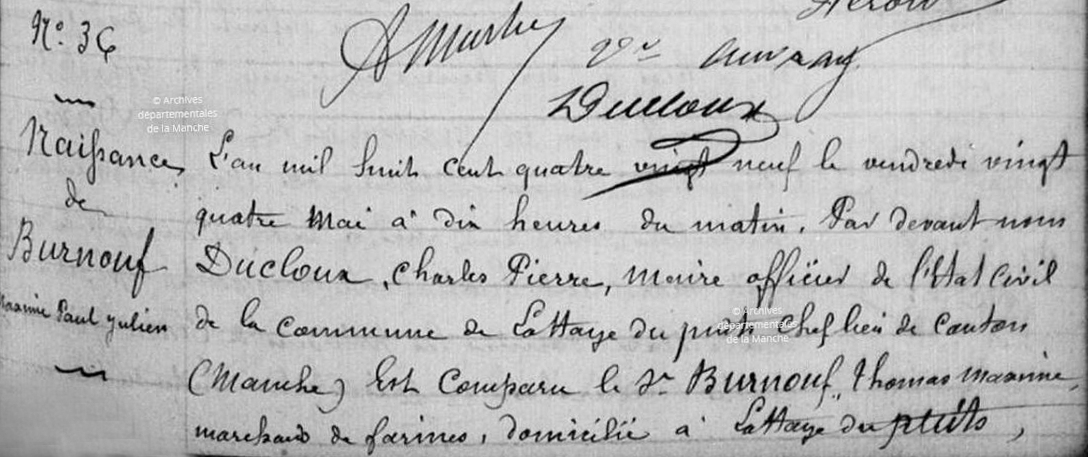 Nº 36
Ducloux
© Archives
départementales
de la Manche
Naissance
de
Burnouf
Maxime Paul Julien
L'an mil huit cent quatre vingt neuf le vendredi vingt
quatre Mai à dix heures du matin. Par devant nous
Ducloux, Charles Pierre, maire officier de l'Etat Civil
de la Commune de Lahaye du puits Chef lieu de Canton
© Archives
départementales
de la Manche
(Manche) Est Comparu le Sr Burnouf, Thomas Maxime,
marchand de farines, domicilié à Lahaye du puits,